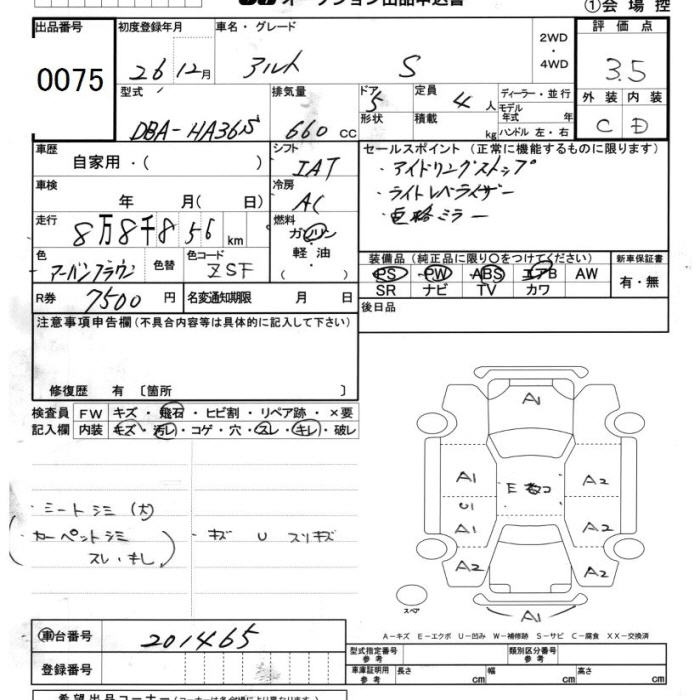 オークション出品申込書
①会場控
出品番号
0075
初度登録年月
26 12月
車名・グレード
アルト S
2WD
・
4WD
評価点
3.5
外装 内装
C D
型式
DBA-HA36S
排気量
660 cc
ドア 5
形状
定員 4 人
積載 kg
ディーラー・並行
モデル年式 年
ハンドル 左・右
車歴
自家用・( )
シフト
IAT
セールスポイント (正常に機能するものに限ります)
・アイドリングストップ
・ライトレベライザー
・電格ミラー
車検
年 月( 日)
冷房
AC
走行
8万8千856 km
燃料
ガソリン
・
軽・油
( )
色
アーバンブラウン
色替
色コード
ZSF
装備品 (純正品に限り○をつけてください)
PS PW ABS エアB AW
SR ナビ TV カワ
新車保証書
有・無
R券 7500 円
名変通知期限 月 日
後日品
注意事項申告欄 (不具合内容等は具体的に記入して下さい)
修復歴 有 〔箇所 〕
検査員記入欄
FW キズ・飛石・ヒビ割・リペア跡・×要
内装 キズ・汚レ・コゲ・穴・スレ・キレ・破レ
シートシミ (大)
カーペットシミ
スレ・キレ
・キズ U スリキズ
A1
A1 E数コ A2
U1
A1 A2
A2 A2
スペア
A1
A-キズ E-エクボ U-凹み W-補修跡 S-サビ C-腐食 XX-交換済
車台番号
201465
登録番号
型式指定番号
参考
類別区分番号
参考
車庫証明用
参考
長さ cm 幅 cm 高さ cm
希望出品コーナー